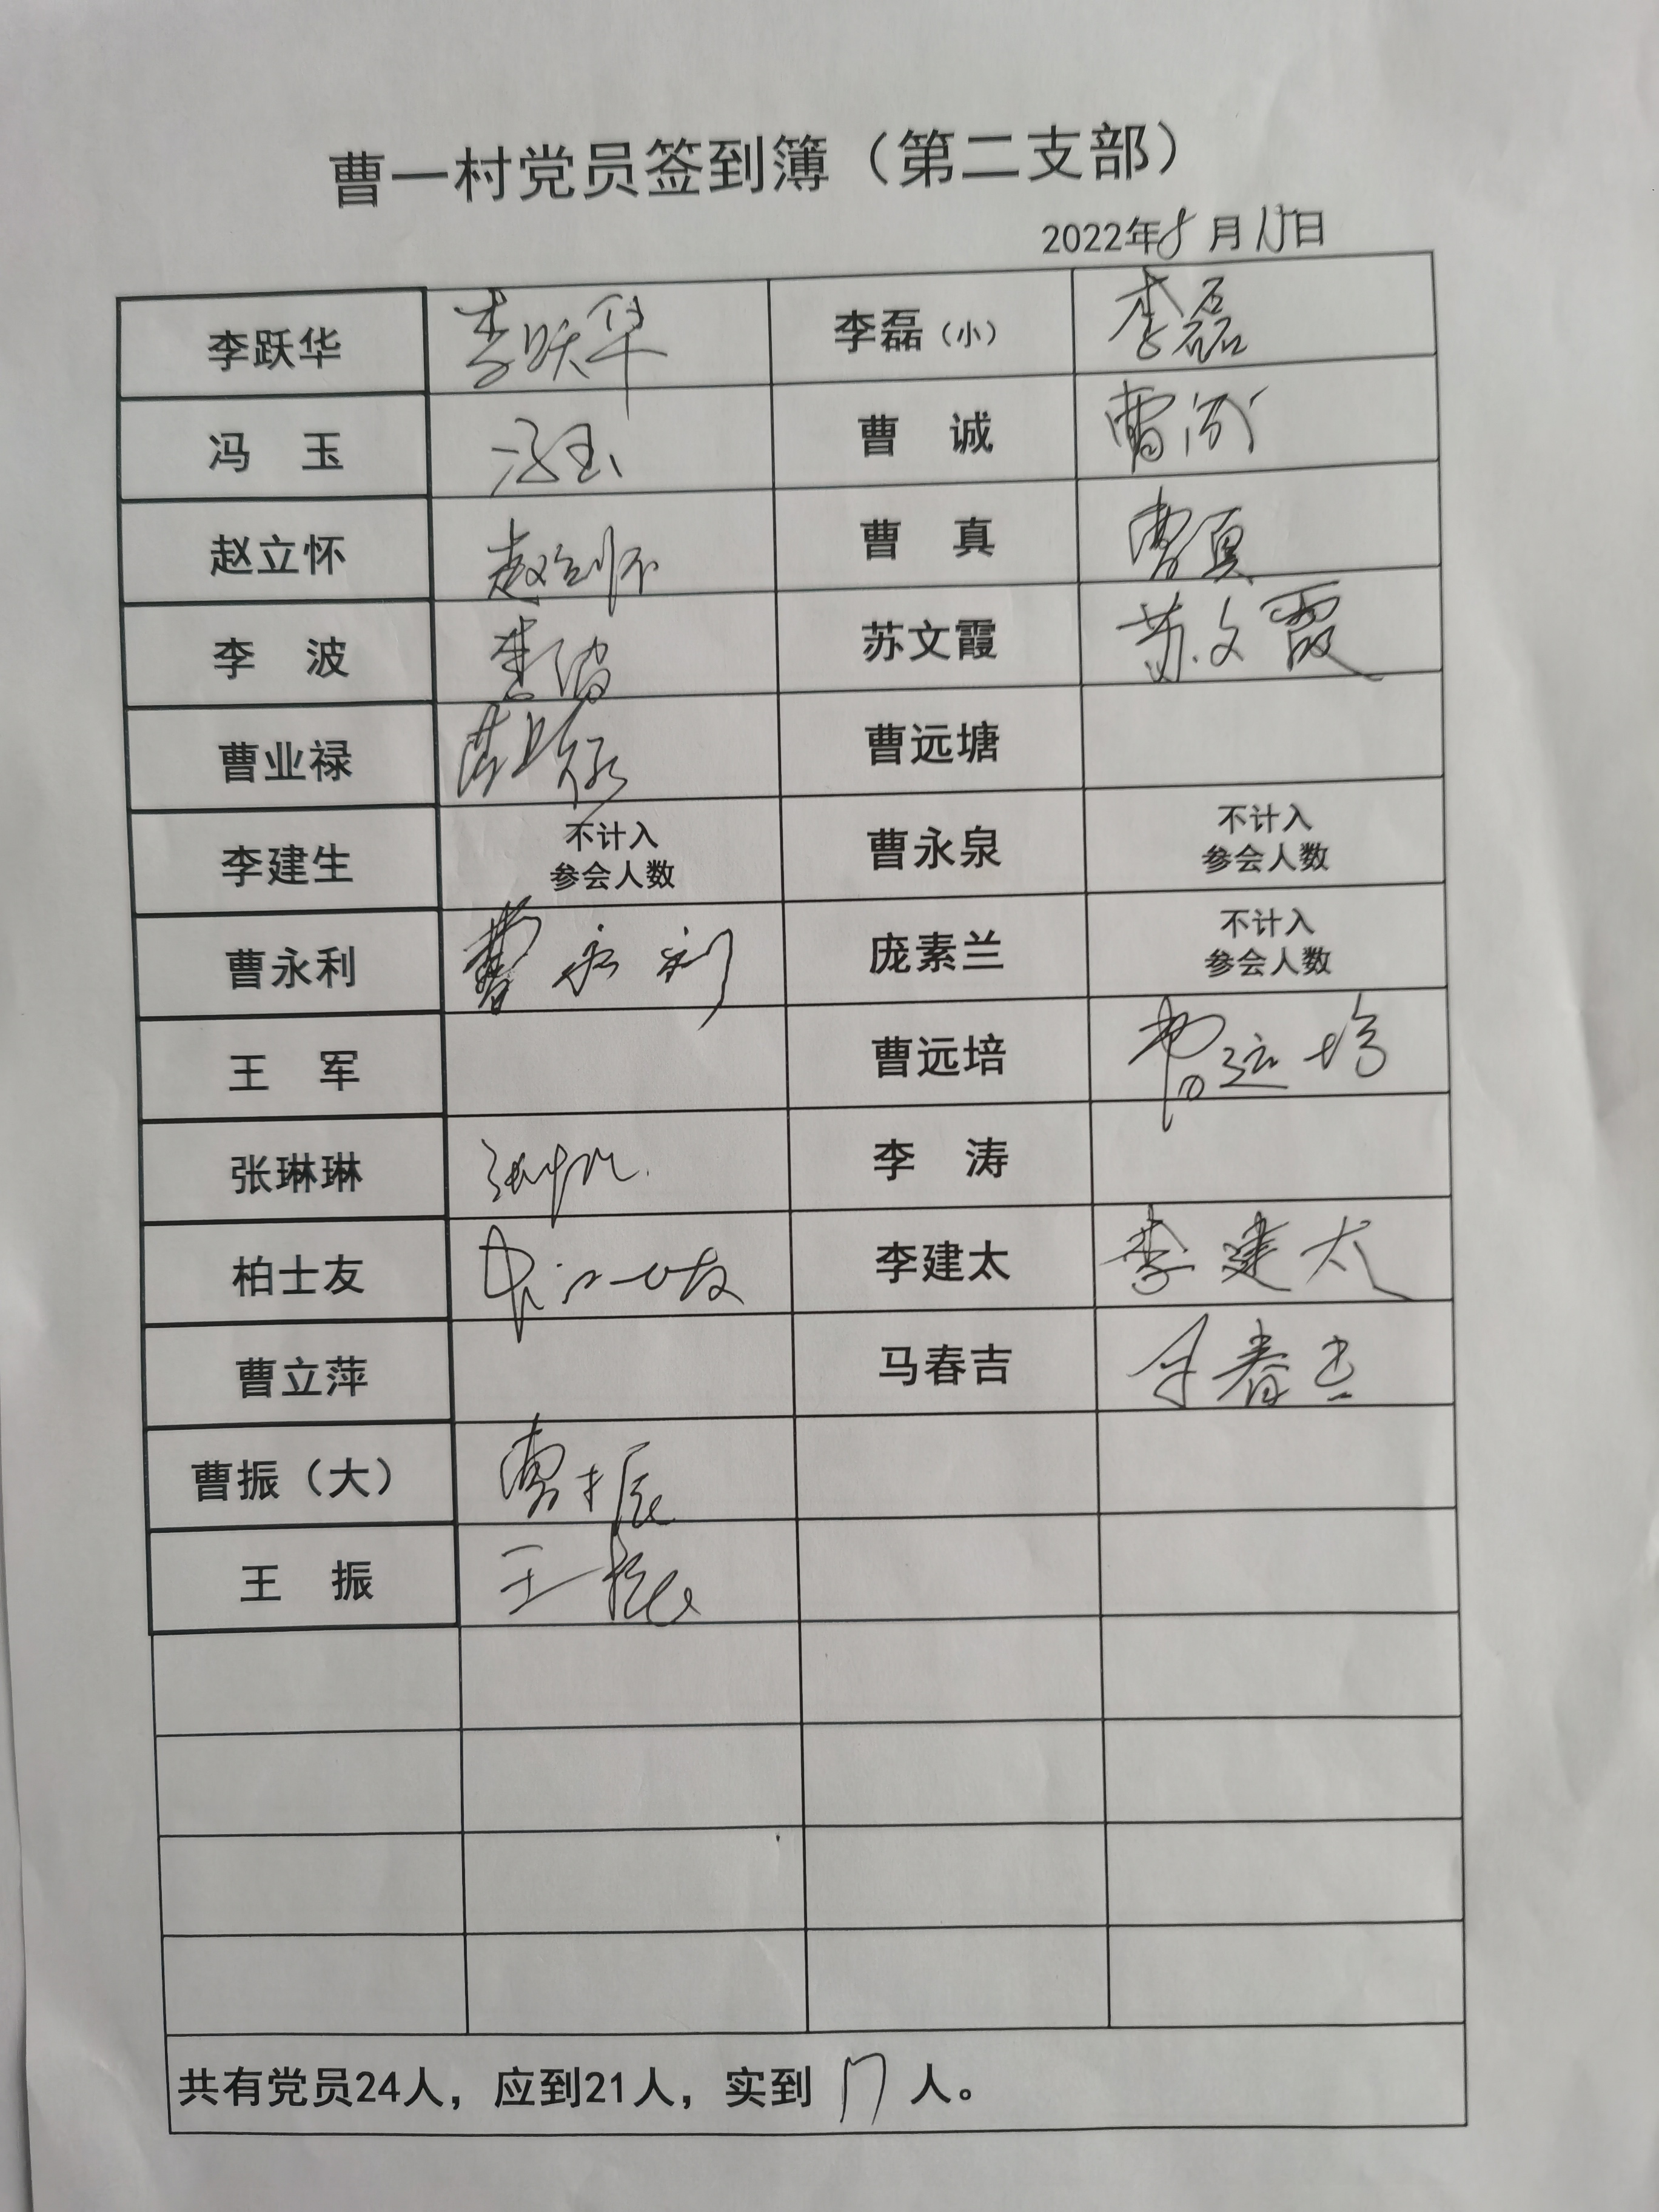 曹一村党员签到簿（第二支部）
2022年8月15日
李跃华 李跃华 李磊（小） 李磊
冯 玉 冯玉 曹 诚 曹诚
赵立怀 赵立怀 曹 真 曹真
李 波 李波 苏文霞 苏文霞
曹业禄 曹业禄 曹远塘
李建生 不计入 曹永泉 不计入
参会人数 参会人数
曹永利 曹永利 庞素兰 不计入
参会人数
王 军 曹远培 曹远培
张琳琳 张琳琳 李 涛
柏士友 柏士友 李建太 李建太
曹立萍 马春吉 马春吉
曹振（大） 曹振
王 振 王振
共有党员24人，应到21人，实到 17 人。